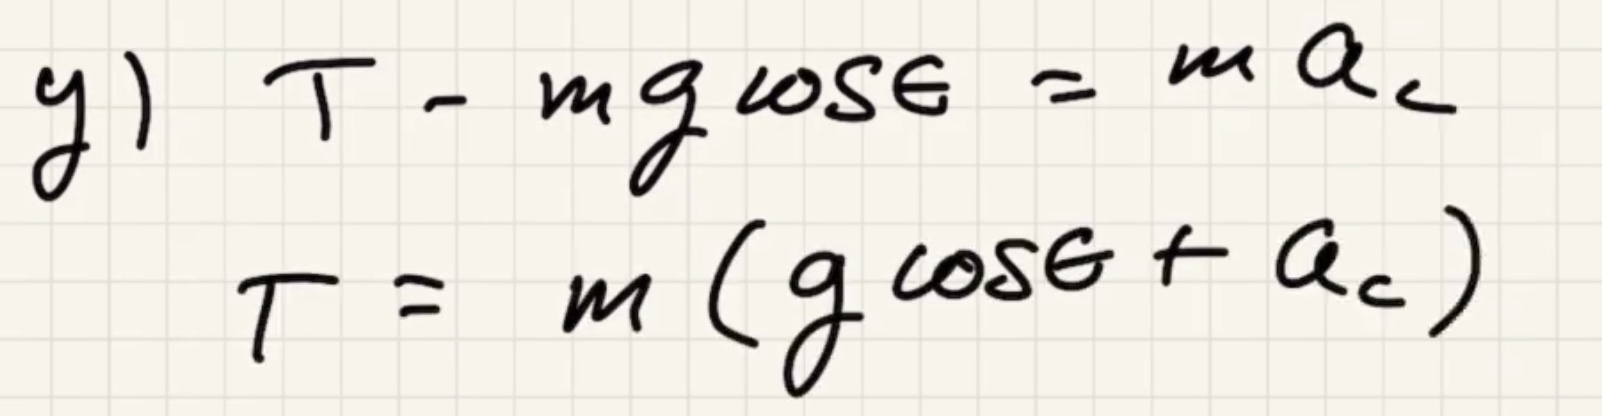 y) T - mg cosθ = m a_c
T = m (g cosθ + a_c)